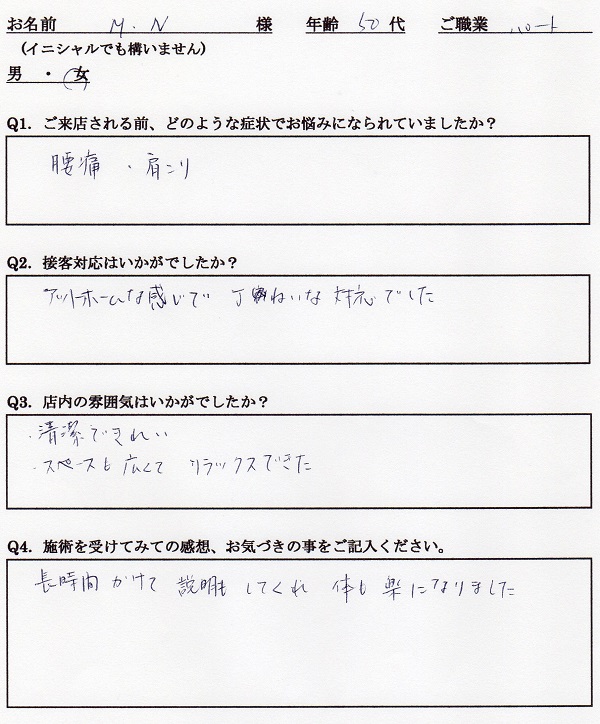 お名前 M.N 様 年齢 50 代 ご職業 パート
(イニシャルでも構いません)
男 ・ 女
Q1. ご来店される前、どのような症状でお悩みになられていましたか？
腰痛 ・ 肩こり
Q2. 接客対応はいかがでしたか？
アットホームな感じで 丁ねいな 対応でした
Q3. 店内の雰囲気はいかがでしたか？
・清潔できれい
・スペースも広くて リラックスできた
Q4. 施術を受けてみての感想、お気づきの事をご記入ください。
長時間 かけて 説明も してくれ 体も 楽になりました